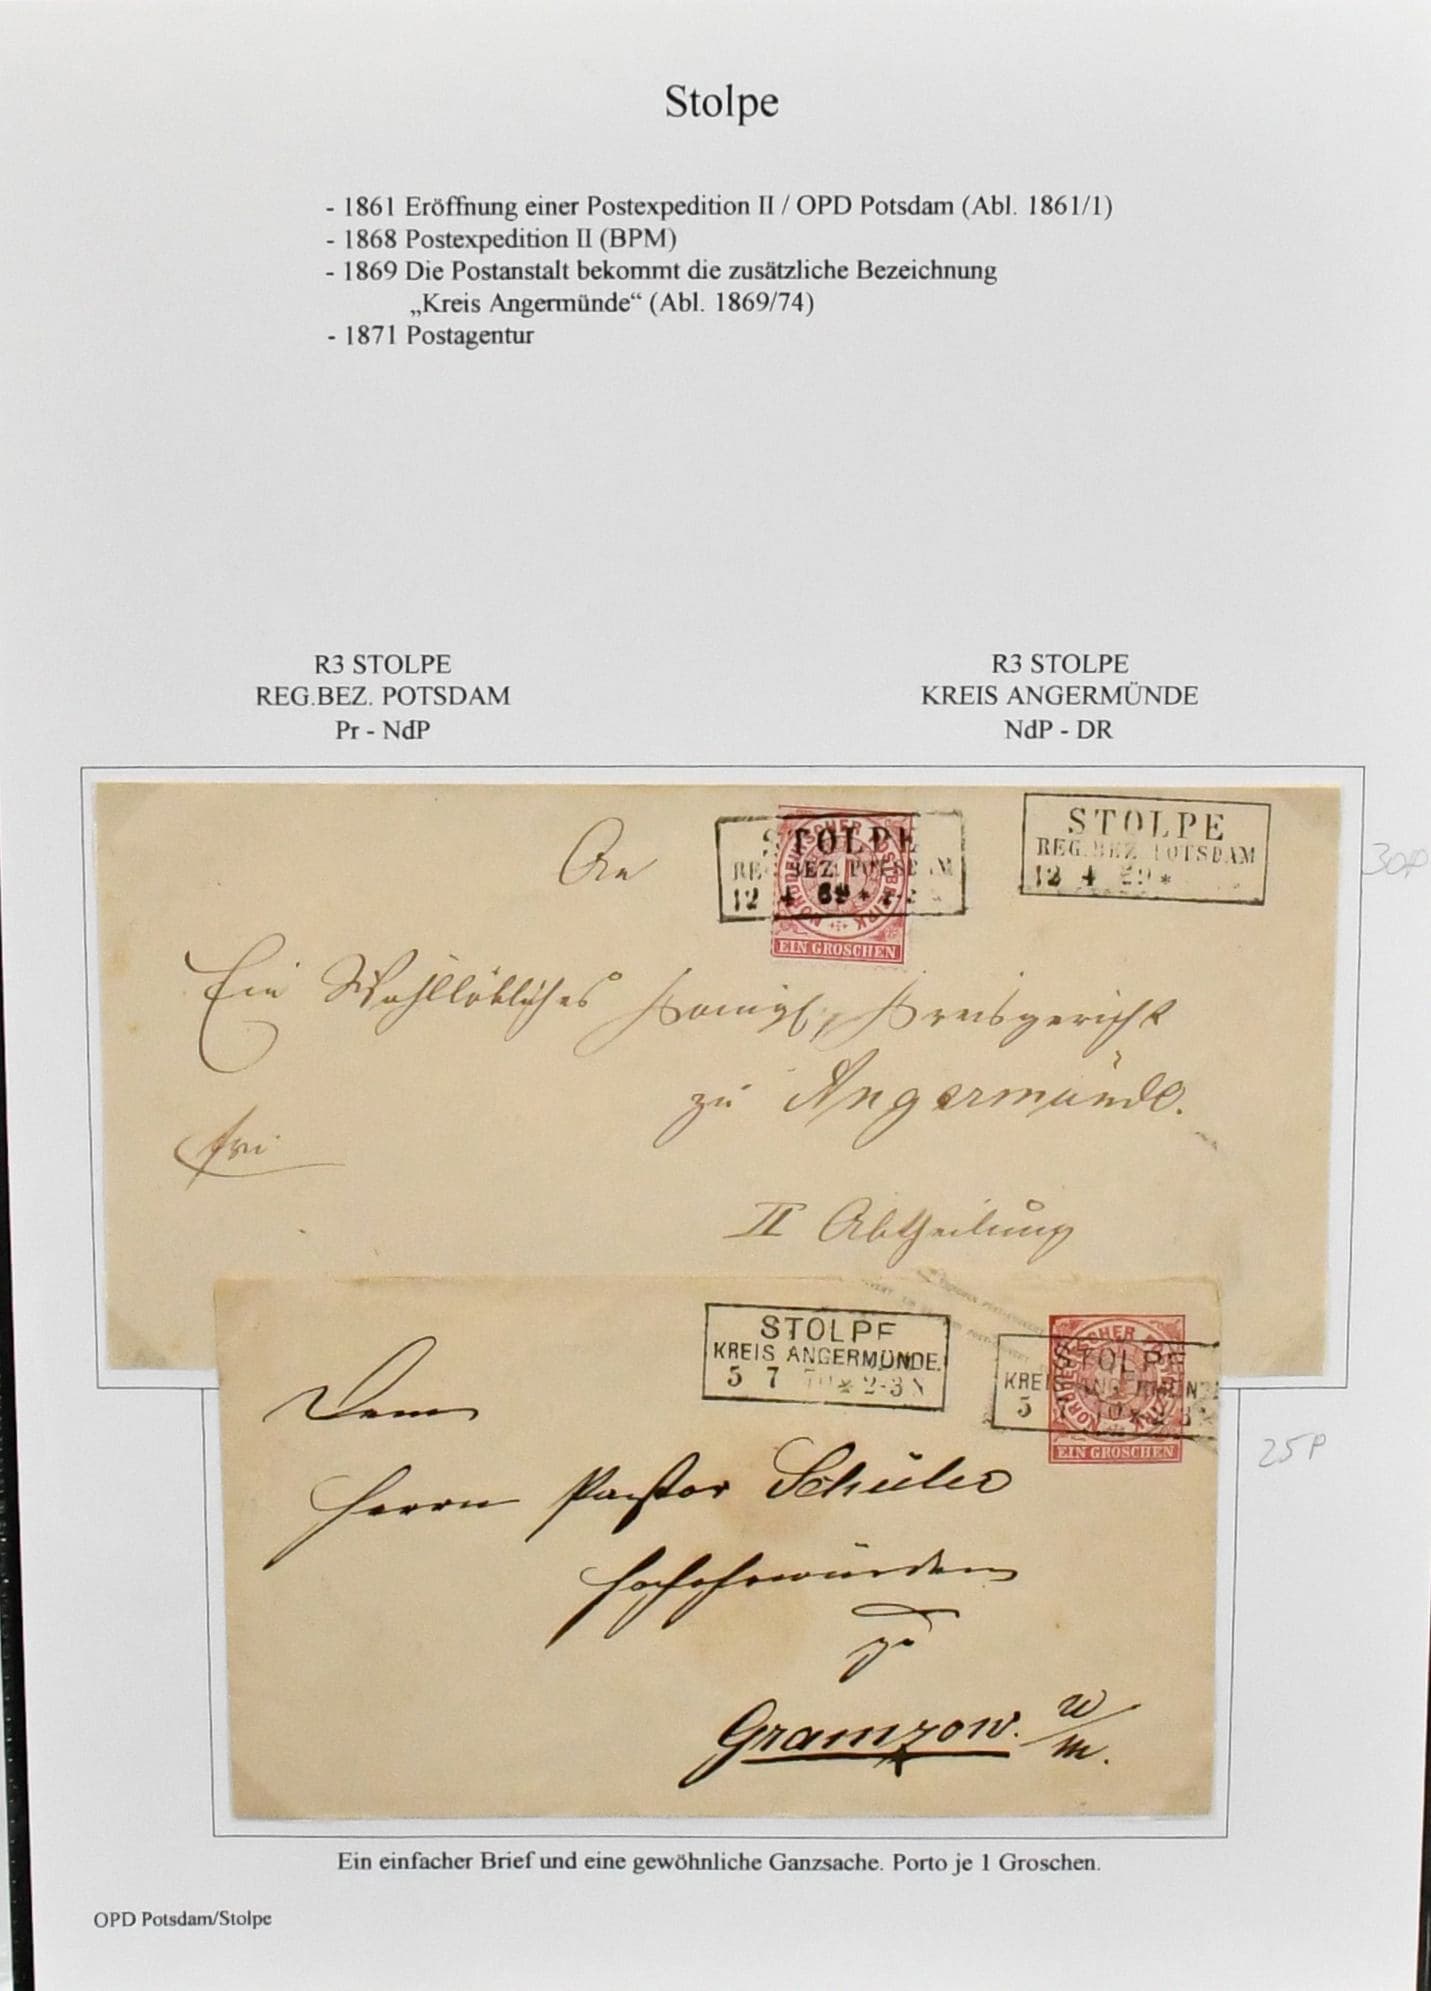 Stolpe
- 1861 Eröffnung einer Postexpedition II / OPD Potsdam (Abl. 1861/1)
- 1868 Postexpedition II (BPM)
- 1869 Die Postanstalt bekommt die zusätzliche Bezeichnung
„Kreis Angermünde“ (Abl. 1869/74)
- 1871 Postagentur
R3 STOLPE
REG.BEZ. POTSDAM
Pr - NdP
R3 STOLPE
KREIS ANGERMÜNDE
NdP - DR
An
STOLPE
REG. BEZ. POTSDAM
12 4 69 *
NORDDEUTSCHER POSTBEZIRK
1
EIN GROSCHEN
STOLPE
REG. BEZ. POTSDAM
12 4 69 *
30P
Ein Wohllöbliches Königl. Kreisgericht
zu Angermünde.
frei
II Abtheilung
STOLPE
KREIS ANGERMÜNDE.
5 7 70 * 2-3 N
STOLPE
KREIS ANGERMÜNDE
5 7 70 * 2-3
NORDDEUTSCHER POSTBEZIRK
EIN GROSCHEN
25P
Dem
Herrn Pastor Schüler
Hochehrwürden
zu
Gramzow. U/M.
Ein einfacher Brief und eine gewöhnliche Ganzsache. Porto je 1 Groschen.
OPD Potsdam/Stolpe